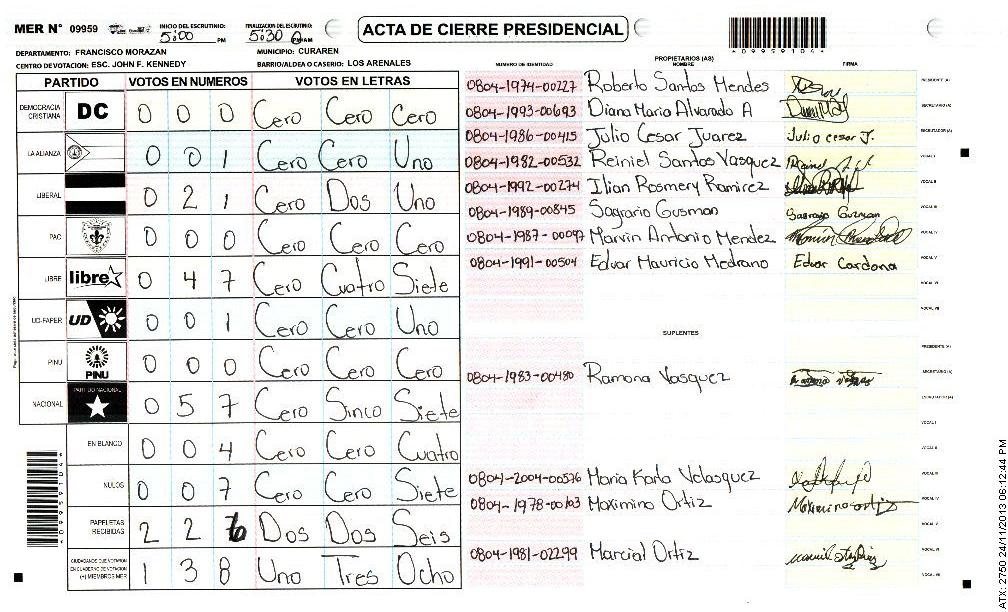 MER N° 09959 INICIO DEL ESCRUTINIO: 5:00 PM FINALIZACION DEL ESCRUTINIO: 5:30 PM/AM
ACTA DE CIERRE PRESIDENCIAL
*0995910*
DEPARTAMENTO: FRANCISCO MORAZAN MUNICIPIO: CURAREN
CENTRO DE VOTACION: ESC. JOHN F. KENNEDY BARRIO/ALDEA O CASERIO: LOS ARENALES
PARTIDO VOTOS EN NUMEROS VOTOS EN LETRAS
DEMOCRACIA CRISTIANA DC 0 0 0 Cero Cero Cero
LA ALIANZA 0 0 1 Cero Cero Uno
LIBERAL 0 2 1 Cero Dos Uno
PAC 0 0 0 Cero Cero Cero
LIBRE libre 0 4 7 Cero Cuatro Siete
UD-FAPER UD 0 0 1 Cero Cero Uno
PINU PINU 0 0 0 Cero Cero Cero
NACIONAL PARTIDO NACIONAL 0 5 7 Cero Sinco Siete
EN BLANCO 0 0 4 Cero Cero Cuatro
NULOS 0 0 7 Cero Cero Siete
PAPELETAS RECIBIDAS 2 2 6 Dos Dos Seis
CIUDADANOS QUE VOTARON EN CUADERNO DE VOTACION (+) MIEMBROS MER 1 3 8 Uno Tres Ocho
PROPIETARIOS (AS)
NUMERO DE IDENTIDAD NOMBRE FIRMA
0804-1974-00227 Roberto Santos Mendes PRESIDENTE (A)
0804-1993-00693 Diana Maria Alvarado A SECRETARIO (A)
0804-1986-00415 Julio Cesar Juarez Julio cesar J. ESCRUTADOR (A)
0804-1982-00532 Reiniel Santos Vasquez VOCAL I
0804-1992-00274 Ilian Rosmery Ramirez VOCAL II
0804-1989-00845 Sagrario Gusman Sagrario Guzman VOCAL III
0804-1987-00097 Marvin Antonio Mendez VOCAL IV
0804-1991-00504 Edvar Mauricio Medrano Edvar Cardona VOCAL V
VOCAL VI
VOCAL VII
SUPLENTES
PRESIDENTE (A)
0804-1983-00480 Ramona Vasquez SECRETARIO (A)
ESCRUTADOR (A)
VOCAL I
VOCAL II
0804-2004-00576 Maria Karla Velasquez VOCAL III
0804-1978-00103 Maximino Ortiz Maximino ortiz VOCAL IV
VOCAL V
0804-1981-02299 Marcial Ortiz VOCAL VI
VOCAL VII
ATX: 2750 24/11/2013 06:12:44 PM